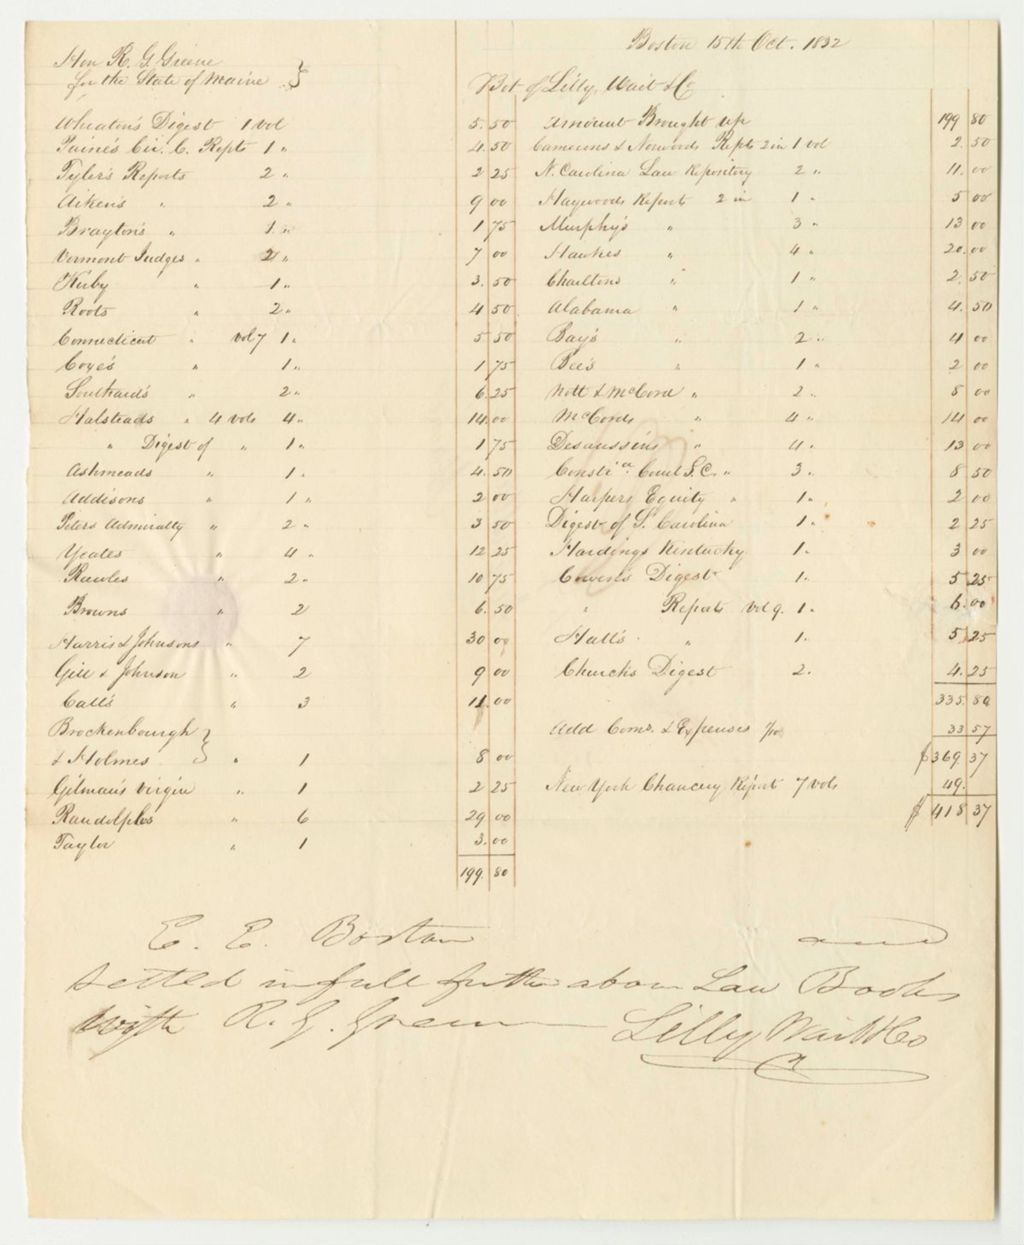 Boston 15th Oct. 1832
Hon R. G. Greene
for the State of Maine }
Bot of Lilly, Wait & Co
Wheaton's Digest 1 vol 5.50
Paine's Cir. C. Repts 1 " 4.50
Tyler's Reports 2 " 2 25
Aikens " 2 " 9 00
Brayton's " 1 " 1 75
Vermont Judges " 2 " 7 00
Kirby " 1 " 3.50
Roots " 2 " 4 50
Connecticut " vol 7 1 " 5 50
Coxe's " 1 " 1 75
Southard's " 2 " 6.25
Halsteads " 4 vols 4 " 14.00
" Digest of " 1 " 1 75
Ashmeads " 1 " 4.50
Addisons " 1 " 2 00
Peters Admiralty " 2 " 3 50
Yeates " 4 " 12 25
Rawles " 2 " 10 75
Browns " 2 6.50
Harris & Johnsons " 7 30 00
Gill & Johnson " 2 9 00
Call's " 3 11.00
Brockenbourgh }
& Holmes } " 1 8 00
Gilman's Virgin " 1 2 25
Randolphs " 6 29 00
Taylor " 1 3.00
199.80
Amount Brought up 199 80
Camerons & Norwoods Repts 2 in 1 vol 2.50
N. Carolina Law Repository 2 " 11.00
Haywoods Report 2 in 1 " 5 00
Murphy's " 3 " 13 00
Hawkes " 4 " 20.00
Charltons " 1 " 2.50
Alabama " 1 " 4.50
Bay's " 2 " 4 00
Bee's " 1 " 2 00
Nott & McCord " 2 " 8 00
McCords " 4 " 14 00
Desaussuirs " 4 " 13 00
Consti'al Court S.C. " 3 " 8 50
Harpers Equity " 1 " 2 00
Digest of S. Carolina 1 " 2 25
Hardings Kentucky 1 " 3 00
Cowen's Digest 1 " 5 25
" Reports vol 9. 1 " 6.00
Hall's " 1 " 5 25
Church's Digest 2. 4.25
335.80
Add Comn. & Expenses 33 57
$369 37
New York Chancery Report 7 vols 49.
$418 37
E. E. Boston and
settled in full for the above Law Books
with R. G. Green Lilly, Wait & Co